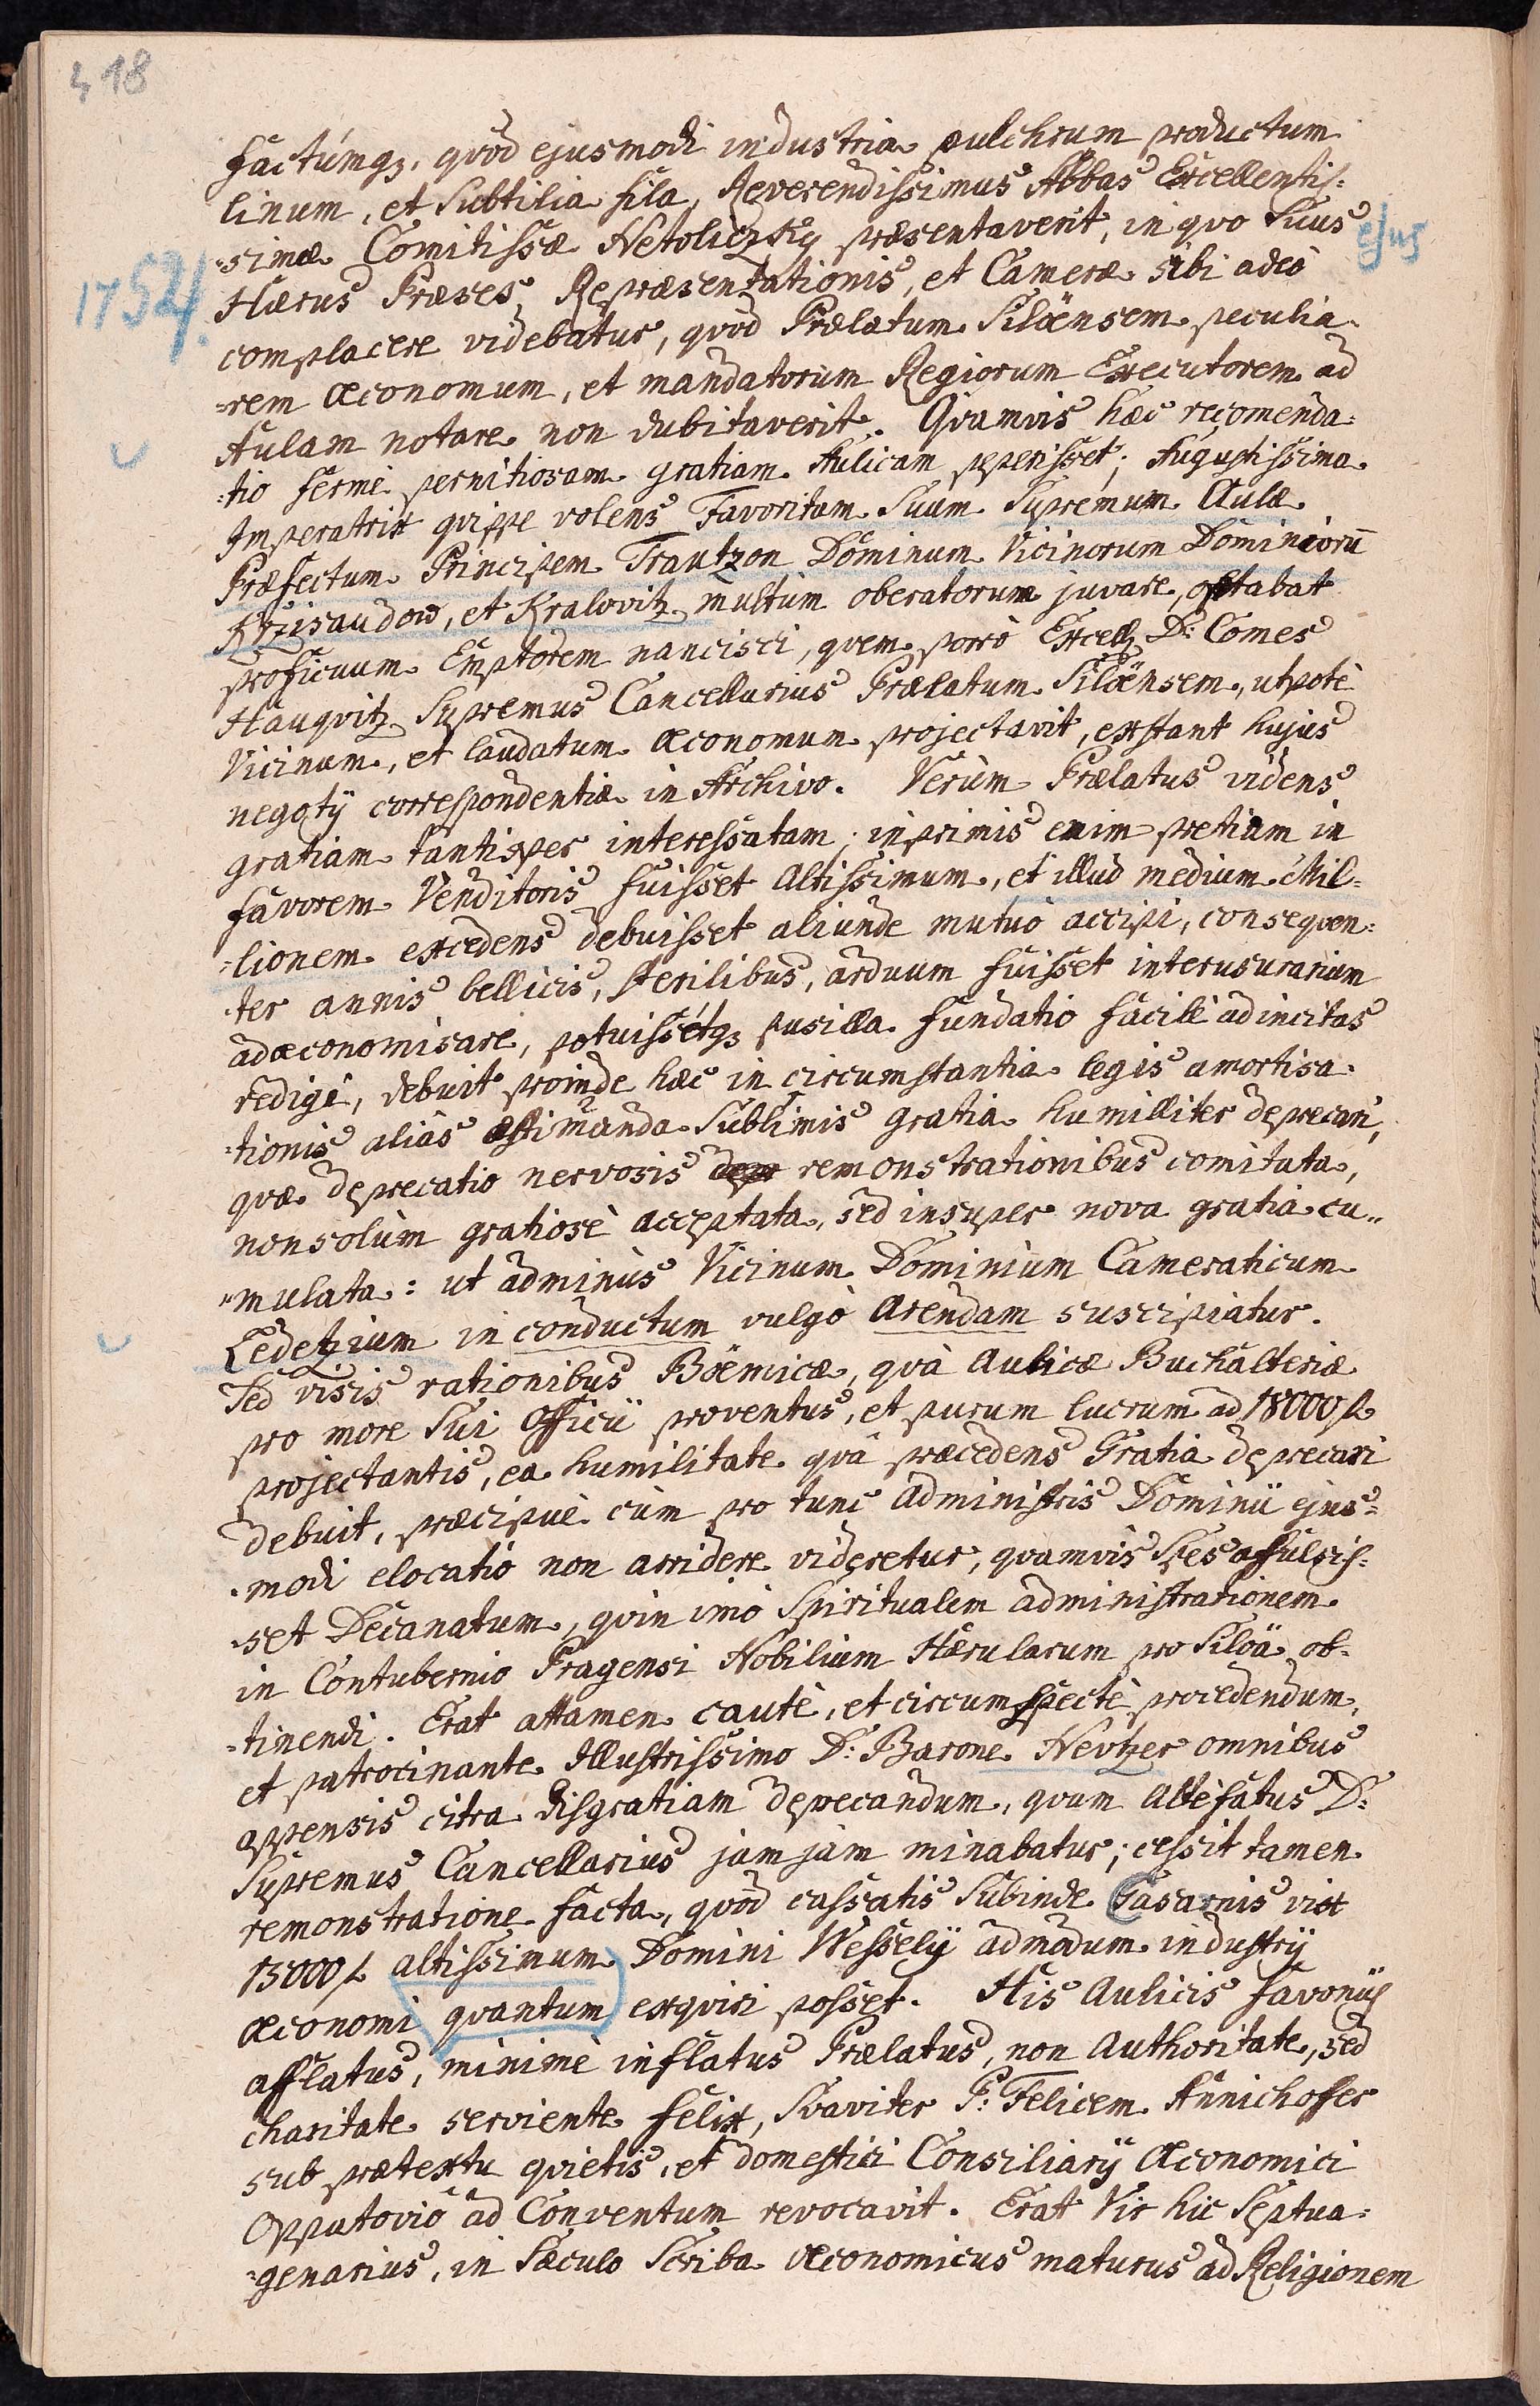 418
factúmqz, qvòd ejusmodi industria pulchrum productum
linum, et Subtilia fila, Reverendissimus Abbas Excellentis:
:simæ Comitissæ Netoliczky præsentaverit, in qvo Suus ejus
1754.
Hærus Præses Repræsentationis, et Cameræ sibi adeò
complacere videbatur, qvòd Prælatum Siloënsem peculia:
:rem Œconomum, et mandatorum Regiorum Executorem ad
Aulam notare non dubitaverit. Qvamvis hæc recomenda:
:tio fermè pernitiosam gratiam Aulicam peperisset; Augustissima
Imperatrix qvippe volens Favoritam Suum Supremum Aulæ
Præfectum Principem Trautzon Dominum Vicinorum Dominiorū
Krzisaudow, et Kralovitz multùm oberatorum juvare, optabat
proficuum Emptorem nancisci, qvem porrò Excell. D: Comes
Haugvitz Supremus Cancellarius Prælatum Siloënsem, utpotè
Vicinum, et laudatum Œconomum projectavit, exstant hujus
negotÿ correspondentiæ in Archivo. Verùm Prælatus videns
gratiam tantisper interessatam; inprimis enim pretium in
favorem Venditoris fuisset Altissimum, et illud medium Mil:
:lionem excedens debuisset aliunde mutuò accipi, conseqven:
:ter annis bellicis, sterilibus, arduum fuisset interusurarium
adœconomisare, potuissétqz pusilla fundatio facilè ad incitas
redigi, debuit proinde hæc in circumstantia legis amortisa:
:tionis aliàs æstimanda Sublimis gratia humilliter deprecari,
qvæ deprecatio nervosis remonstrationibus comitata,
non solùm gratiosè acceptata, sed insuper nova gratia cu„
„mulata: ut adminùs Vicinum Dominium Cameraticum
Ledetzium in conductum vulgò Arendam suscipiatur.
Sed visis rationibus Boëmicæ, qvà Aulicæ Buchalteriæ
pro more Sui Officii proventus, et purum lucrum ad 18000 f
projectantis, ea humilitate qvâ præcedens Gratia deprecari
debuit, præcipuè cùm pro tunc Administris Dominii ejus:
:modi elocatio non arridere videretur, qvamvis Spes affulsis:
:set Decanatum, qvin imò Spiritualem administrationem
in Contubernio Pragensi Nobilium Hærularum pro Siloä ob:
:tinendi. Erat attamen cautè, et circumspectè procedendum,
et patrocinante Illustrissimo D: Barone Nevtzer omnibus
appensis citra disgratiam deprecandum, qvam Altèfatus D:
Supremus Cancellarius jam jam minabatur; cessit tamen
remonstratione facta, qvòd cassatis Subinde Casarnis vix
13000 f altissimum Domini Wesselÿ admodum industrÿ
œconomi qvantum exqviri posset. His Aulicis favonÿs
afflatus, minimè inflatus Prælatus, non Authoritate, sed
charitate serviente felix, Svaviter P: Felicem Annichoffer
sub prætextu qvietis, et domestici Consiliarÿ Œconomici
Oppatoviô ad Conventum revocavit. Erat Vir hic Septua:
:genarius, in Sæculo Scriba Œconomicus maturus ad Religionem